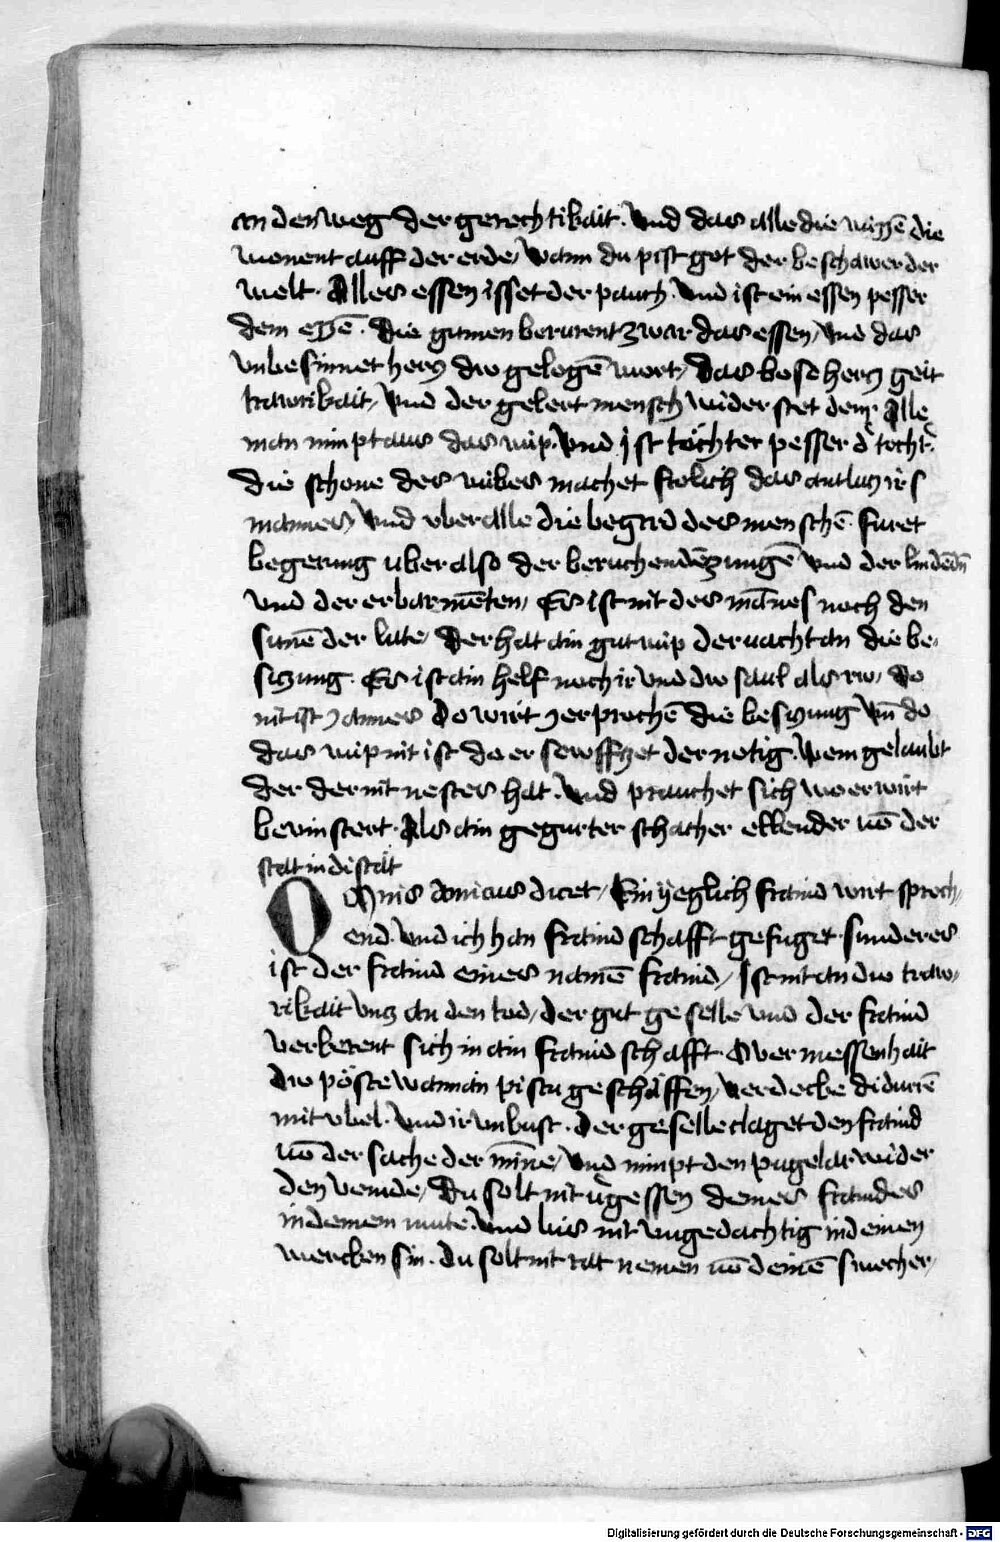 an den weg der gerechtikait. Vnd das alle die wissē die
wonent auff der erde, Wann du pist got der beschawer der
welt. Alles essen isset der pauch. Vnd ist ein essen pesser
dem essē. die gumen berurent zwar das essen, Vnd das
vnbesinnet hercz dw gelogē wort, das bose hercz geit
trawrikait, Vnd der gelert mensch wider stet dem. Alle
man nimpt aus das wip. Vnd ist tochter pesser d̾ tocht̾.
die schone des wibes machet frolich das antlucz irs
mannes, Vnd vber alle die begird des menschē. furet
begerung vber also der beruchendē zungē Vnd der lindēdn̄
Vnd der erbarmēten, Es ist nit des mānes noch den
sinnē der lute, Der hat ain gut wip der vacht an die be,
siczung. Es ist ain helf noch ir Vnd dw saul als rw, do
nit ist zaunes do wirt zerprochē die besiczung Vn̄ do
das wip nit ist do er sewffczet der notig. Wem gelaubt
der der nit nestes hat. Vnd prauchet sich wo er wirt
bevinstert. Als ain gegurter schacher ellender vō der
stat in di stat
OMnis amicus dicet, Ein yeglich fraind wirt sprech,
end. Vnd ich han fraind schafft gefuget. sunder es
ist der fraind eines namē fraind, Ist nit an dw traw,
rikait vncz an den tod, der gut geselle Vnd der fraind
verkerent sich in ain fraind schafft. O vermessenhait
dw pöste wannan pistu geschaffen, verdecke di durrē
mit vbel. Vnd ir vnkust. der geselle claget den fraind
vō der sache der mīne, Vnd nimpt den pugelar wider
den veinde, Du solt nit v̾gessen deines fraindes
in deinem mute. Vnd bis nit vngedachtig in deinen
wercken sin. du solt nit rat nemen vō deinē swecher,
Digitalisierung gefördert durch die Deutsche Forschungsgemeinschaft - DFG